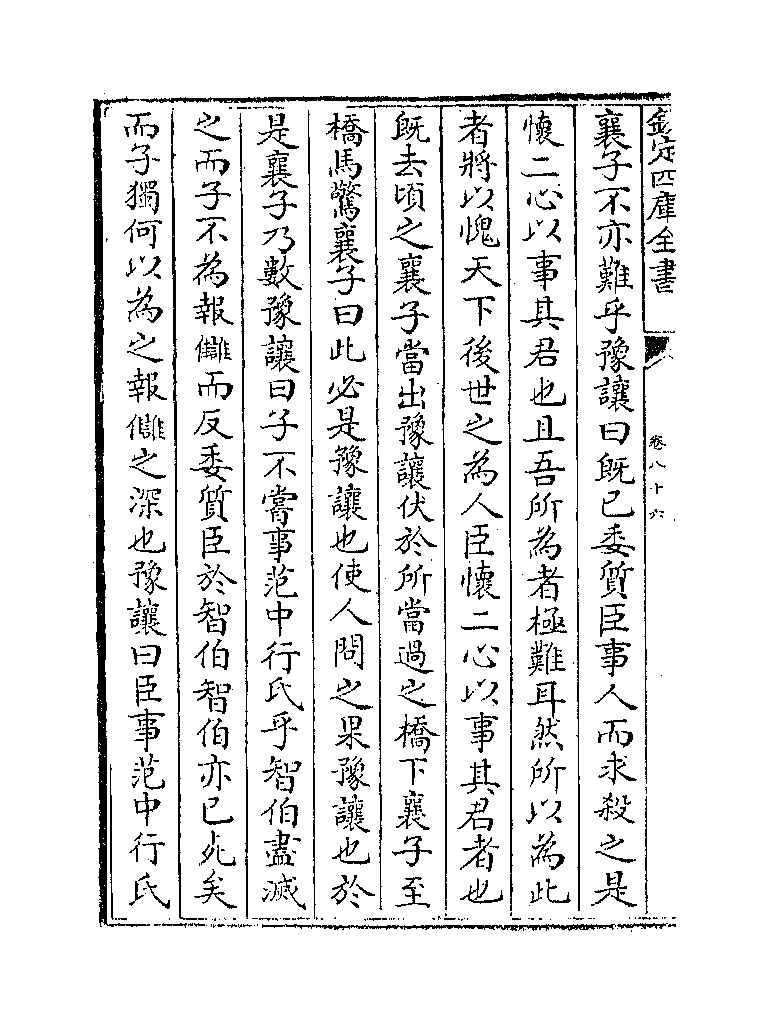 欽定四庫全書
卷八十六
襄子不亦難乎豫讓曰既已委質臣事人而求殺之是
懷二心以事其君也且吾所為者極難耳然所以為此
者將以愧天下後世之為人臣懷二心以事其君者也
既去頃之襄子當出豫讓伏於所當過之橋下襄子至
橋馬驚襄子曰此必是豫讓也使人問之果豫讓也於
是襄子乃數豫讓曰子不嘗事范中行氏乎智伯盡滅
之而子不為報讎而反委質臣於智伯智伯亦已死矣
而子獨何以為之報讎之深也豫讓曰臣事范中行氏